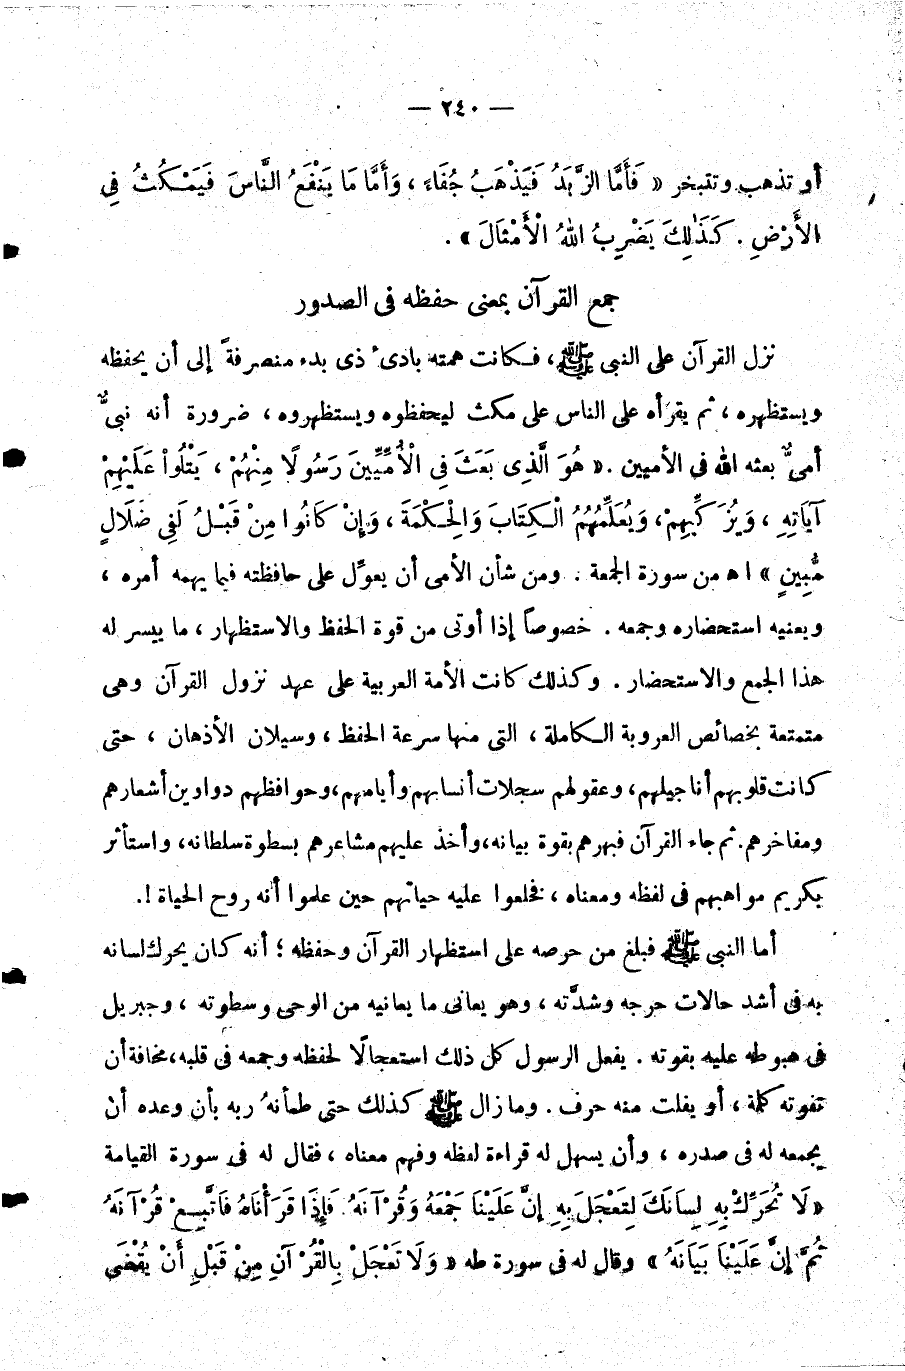 — ٢٤٠ —
أو تذهب وتتبخر « فَأَمَّا الزَّبَدُ فَيَذْهَبُ جُفَاءً ، وَأَمَّا مَا يَنْفَعُ النَّاسَ فَيَمْكُثُ فِي
الْأَرْضِ . كَذَٰلِكَ يَضْرِبُ اللهُ الْأَمْثَالَ » .
جمع القرآن بمعنى حفظه فى الصدور
نزل القرآن على النبى ﷺ ، فكانت همته بادئ ذى بدء منصرفةً إلى أن يحفظه
ويستظهره ، ثم يقرأه على الناس على مكث ليحفظوه ويستظهروه ، ضرورة أنه نبىٌّ
أمىٌّ بعثه الله فى الأميين . « هُوَ الَّذِى بَعَثَ فِى الْأُمِّيِّينَ رَسُولًا مِنْهُمْ ، يَتْلُوا عَلَيْهِمْ
آيَاتِهِ ، وَيُزَكِّيهِمْ ، وَيُعَلِّمُهُمُ الْكِتَابَ وَالْحِكْمَةَ ، وَإِنْ كَانُوا مِنْ قَبْلُ لَفِى ضَلَالٍ
مُّبِينٍ » اه من سورة الجمعة . ومن شأن الأمى أن يعوِّل على حافظته فيما يهمه أمره ،
ويعنيه استحضاره وجمعه . خصوصاً إذا أوتى من قوة الحفظ والاستظهار ، ما ييسر له
هذا الجمع والاستحضار . وكذلك كانت الأمة العربية على عهد نزول القرآن وهى
متمتعة بخصائص العروبة الكاملة ، التى منها سرعة الحفظ ، وسيلان الأذهان ، حتى
كانت قلوبهم أناجيلهم، وعقولهم سجلات أنسابهم وأيامهم، وحوافظهم دواوين أشعارهم
ومفاخرهم. ثم جاء القرآن فبهرهم بقوة بيانه، وأخذ عليهم مشاعرهم بسطوة سلطانه، واستأثر
بكريم مواهبهم فى لفظه ومعناه ، فخلعوا عليه حياتهم حين علموا أنه روح الحياة !.
أما النبى ﷺ فبلغ من حرصه على استظهار القرآن وحفظه ؛ أنه كان يحرك لسانه
به فى أشد حالات حرجه وشدَّته ، وهو يعانى ما يعانيه من الوحى وسطوته ، وجبريل
فى هبوطه عليه بقوته . يفعل الرسول كل ذلك استعجالًا لحفظه وجمعه فى قلبه، مخافة أن
تفوته كلمة ، أو يفلت منه حرف . وما زال ﷺ كذلك حتى طمأنهُ ربه بأن وعده أن
يجمعه له فى صدره ، وأن يسهل له قراءة لفظه وفهم معناه ، فقال له فى سورة القيامة
« لَا تُحَرِّكْ بِهِ لِسَانَكَ لِتَعْجَلَ بِهِ إِنَّ عَلَيْنَا جَمْعَهُ وَقُرْآنَهُ . فَإِذَا قَرَأْنَاهُ فَاتَّبِعْ قُرْآنَهُ
ثُمَّ إِنَّ عَلَيْنَا بَيَانَهُ » وقال له فى سورة طه « وَلَا تَعْجَلْ بِالْقُرْآنِ مِنْ قَبْلِ أَنْ يُقْضَى